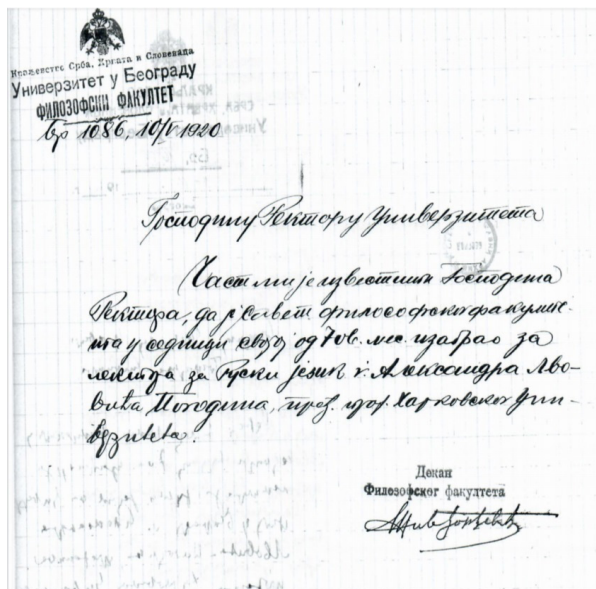 Краљевство Срба, Хрвата и Словенаца
Универзитет у Београду
ФИЛОЗОФСКИ ФАКУЛТЕТ
Бр 1086, 10/V 1920
Господину Ректору Универзитета
Част ми је известити Господина
Ректора, да је Савет филозофског факулте-
та у седници својој од 7 ов. мес. изабрао за
лектора за Руски језик г. Александра Льво-
вића Погодина, проф. Харковског Уни-
верзитета.
Декан
Филозофског факултета